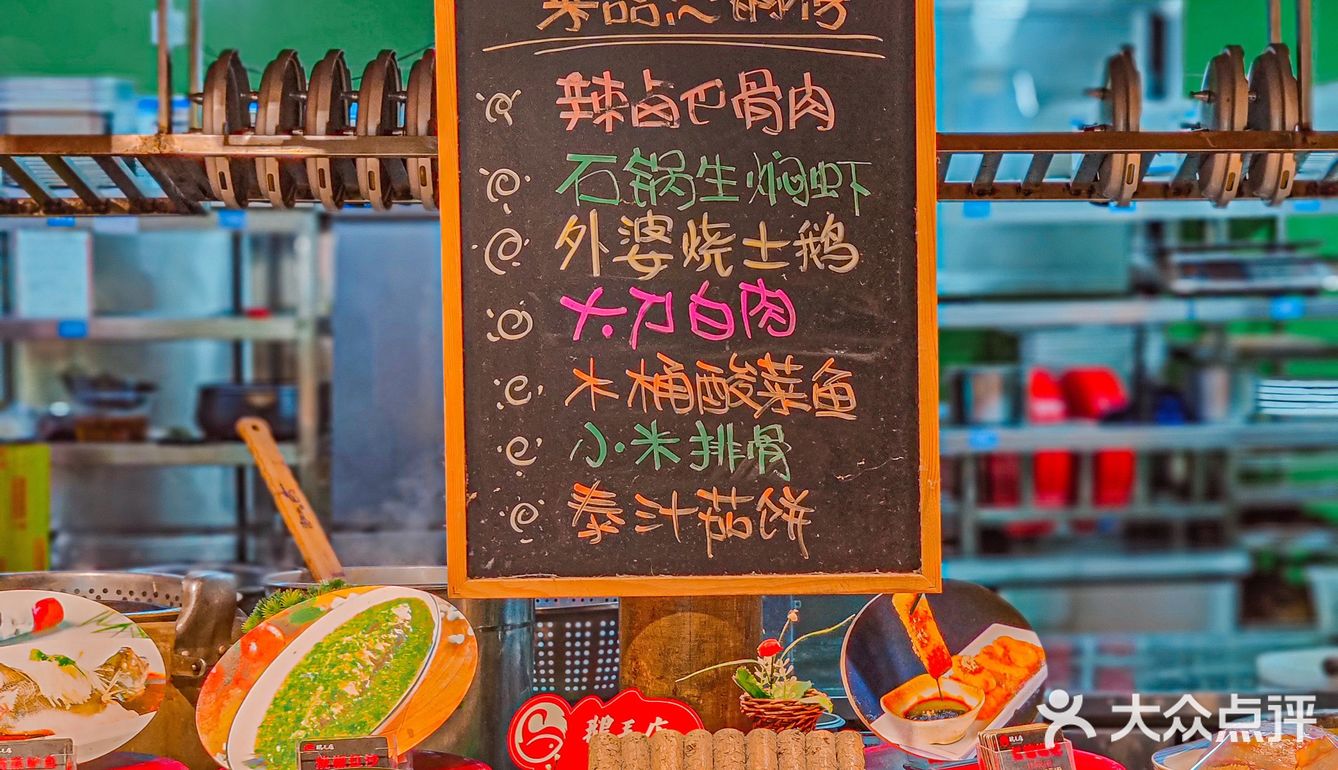 辣卤巴骨肉
石锅生焖虾
外婆烧土鹅
大刀白肉
木桶酸菜鱼
小米排骨
泰汁茄饼
大众点评